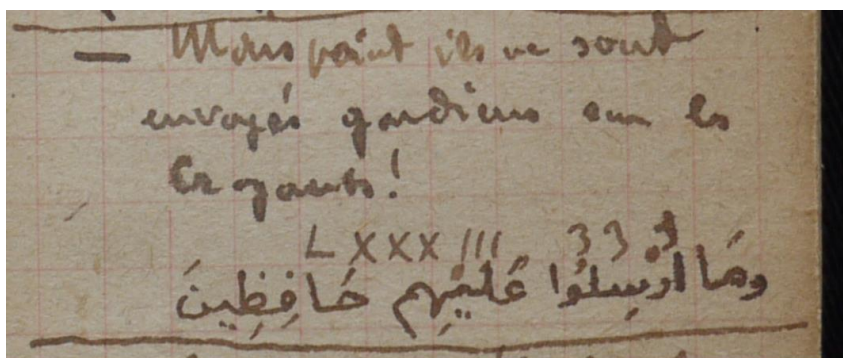 — Mais point ils ne sont
envoyés gardiens sur les
Croyants!
LXXXIII 33
وَمَا اُرْسِلُوا عَلَيْهِم حَافِظِينَ